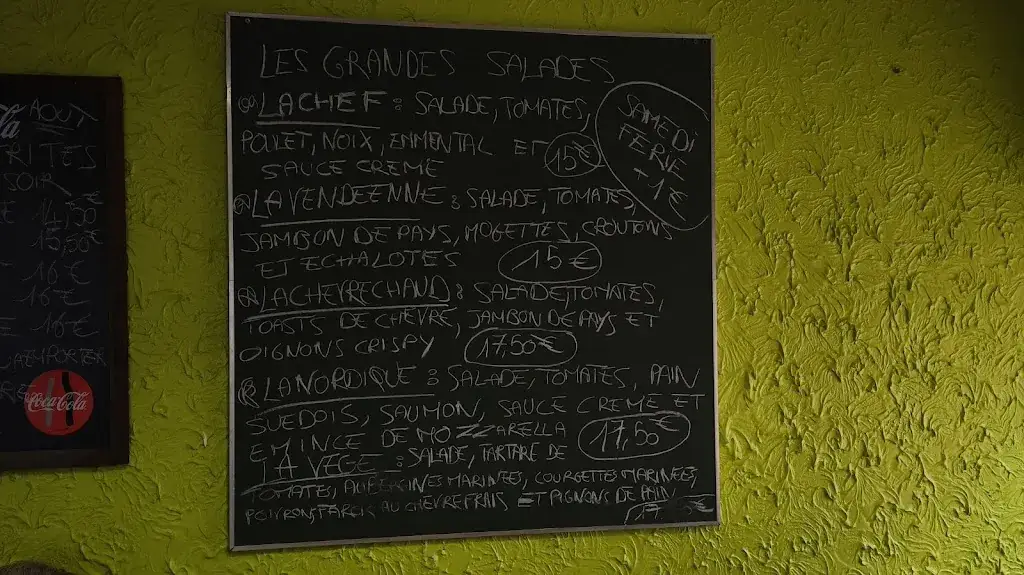 AOUT
RITES
SOIR
14,50
15,50€
16€
16€
16€
Coca-Cola
LES GRANDES SALADES
LA CHEF : SALADE, TOMATES,
POULET, NOIX, EMMENTAL ET 15€
SAUCE CREME
SAMEDI
FERIE
+1€
LA VENDEENNE : SALADE, TOMATES,
JAMBON DE PAYS, MOGETTES, CROUTONS
ET ECHALOTES 15€
LA CHEVRECHAUD : SALADE, TOMATES,
TOASTS DE CHEVRE, JAMBON DE PAYS ET
OIGNONS CRISPY 17,50€
LA NORDIQUE : SALADE, TOMATES, PAIN
SUEDOIS, SAUMON, SAUCE CREME ET
EMINCE DE MOZZARELLA 17,50€
LA VEGE : SALADE, TARTARE DE
TOMATES, AUBERGINES MARINEES, COURGETTES MARINEES,
POIVRONS FARCIS AU CHEVRE FRAIS ET PIGNONS DE PAIN